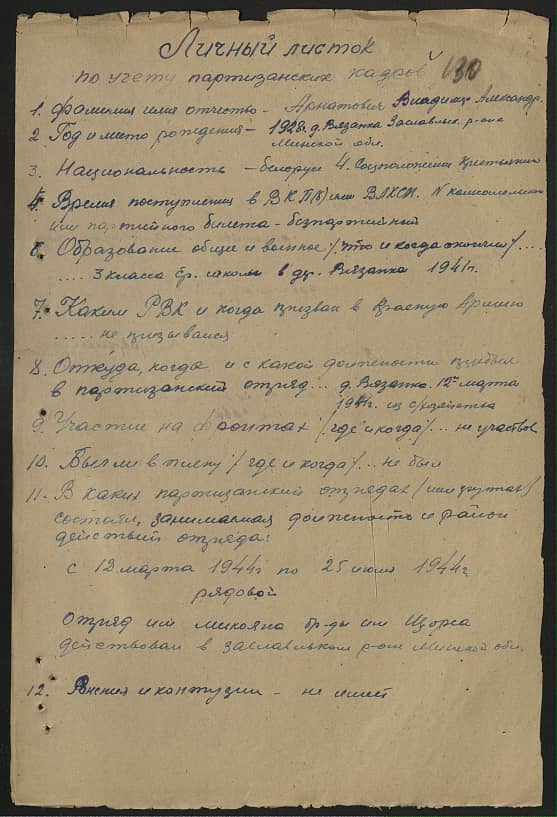 Личный листок
по учету партизанских кадров 130
1. Фамилия имя отчество - Арнатович Владимир Александр.
2 Год и место рождения - 1928г. д. Вязанка Заславльск. р-она
Минской обл.
3. Национальность - белорус 4. Соцположение крестьянин
4. Время поступления в ВКП(б) или ВЛКСМ. N комсомольского
или партийного билета - безпартийный
6. Образование общее и военное /что и когда окончил/ ....
.... 3 класса ср. школы в дер. Вязанка 1941г.
7. Каким РВК и когда призван в Красную Армию
..... не призывался
8. Откуда, когда и с какой должности прибыл
в партизанский отряд... д. Вязанка. 12го марта
1944г. из с/хозяйства
9. Участие на фронтах /где и когда/... не участвов
10. Был ли в плену / где и когда/... не был
11. В каких партизанский отрядах /или группах/
состоял, занимаемая должность и район
действий отряда:
с 12 марта 1944г по 25 июля 1944г.
рядовой
Отряд им Микояна бр-ды им Щорса
действовал в заславльском р-оне Минской обл.
12. Ранения и контузии - не имел